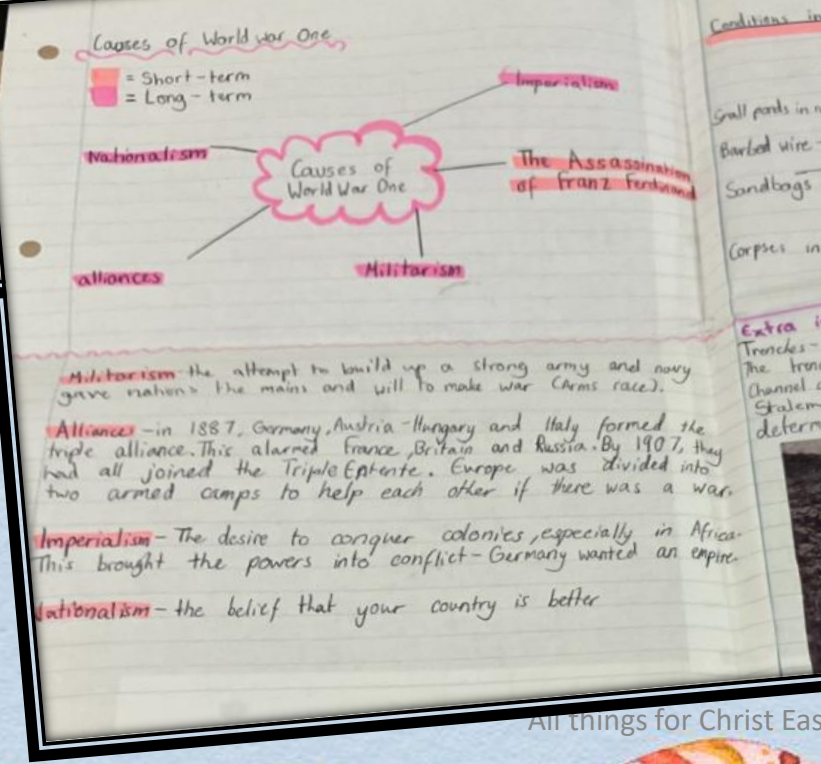 Causes of World War One
= Short-term
= Long-term
Imperialism
Nationalism
Causes of
World War One
The Assassination
of Franz Ferdinand
alliances
Militarism
Militarism-the attempt to build up a strong army and navy
gave nations the mains and will to make war (Arms race).
Alliances-in 1887, Germany, Austria-Hungary and Italy formed the
triple alliance. This alarmed France, Britain and Russia. By 1907, they
had all joined the Triple Entente. Europe was divided into
two armed camps to help each other if there was a war.
Imperialism-The desire to conquer colonies, especially in Africa.
This brought the powers into conflict-Germany wanted an empire.
Nationalism-the belief that your country is better
Conditions in
Small ponds in
Barbed wire-
Sandbags
Corpses in
Extra
Trenches-
The
Channel
All things for Christ Eas